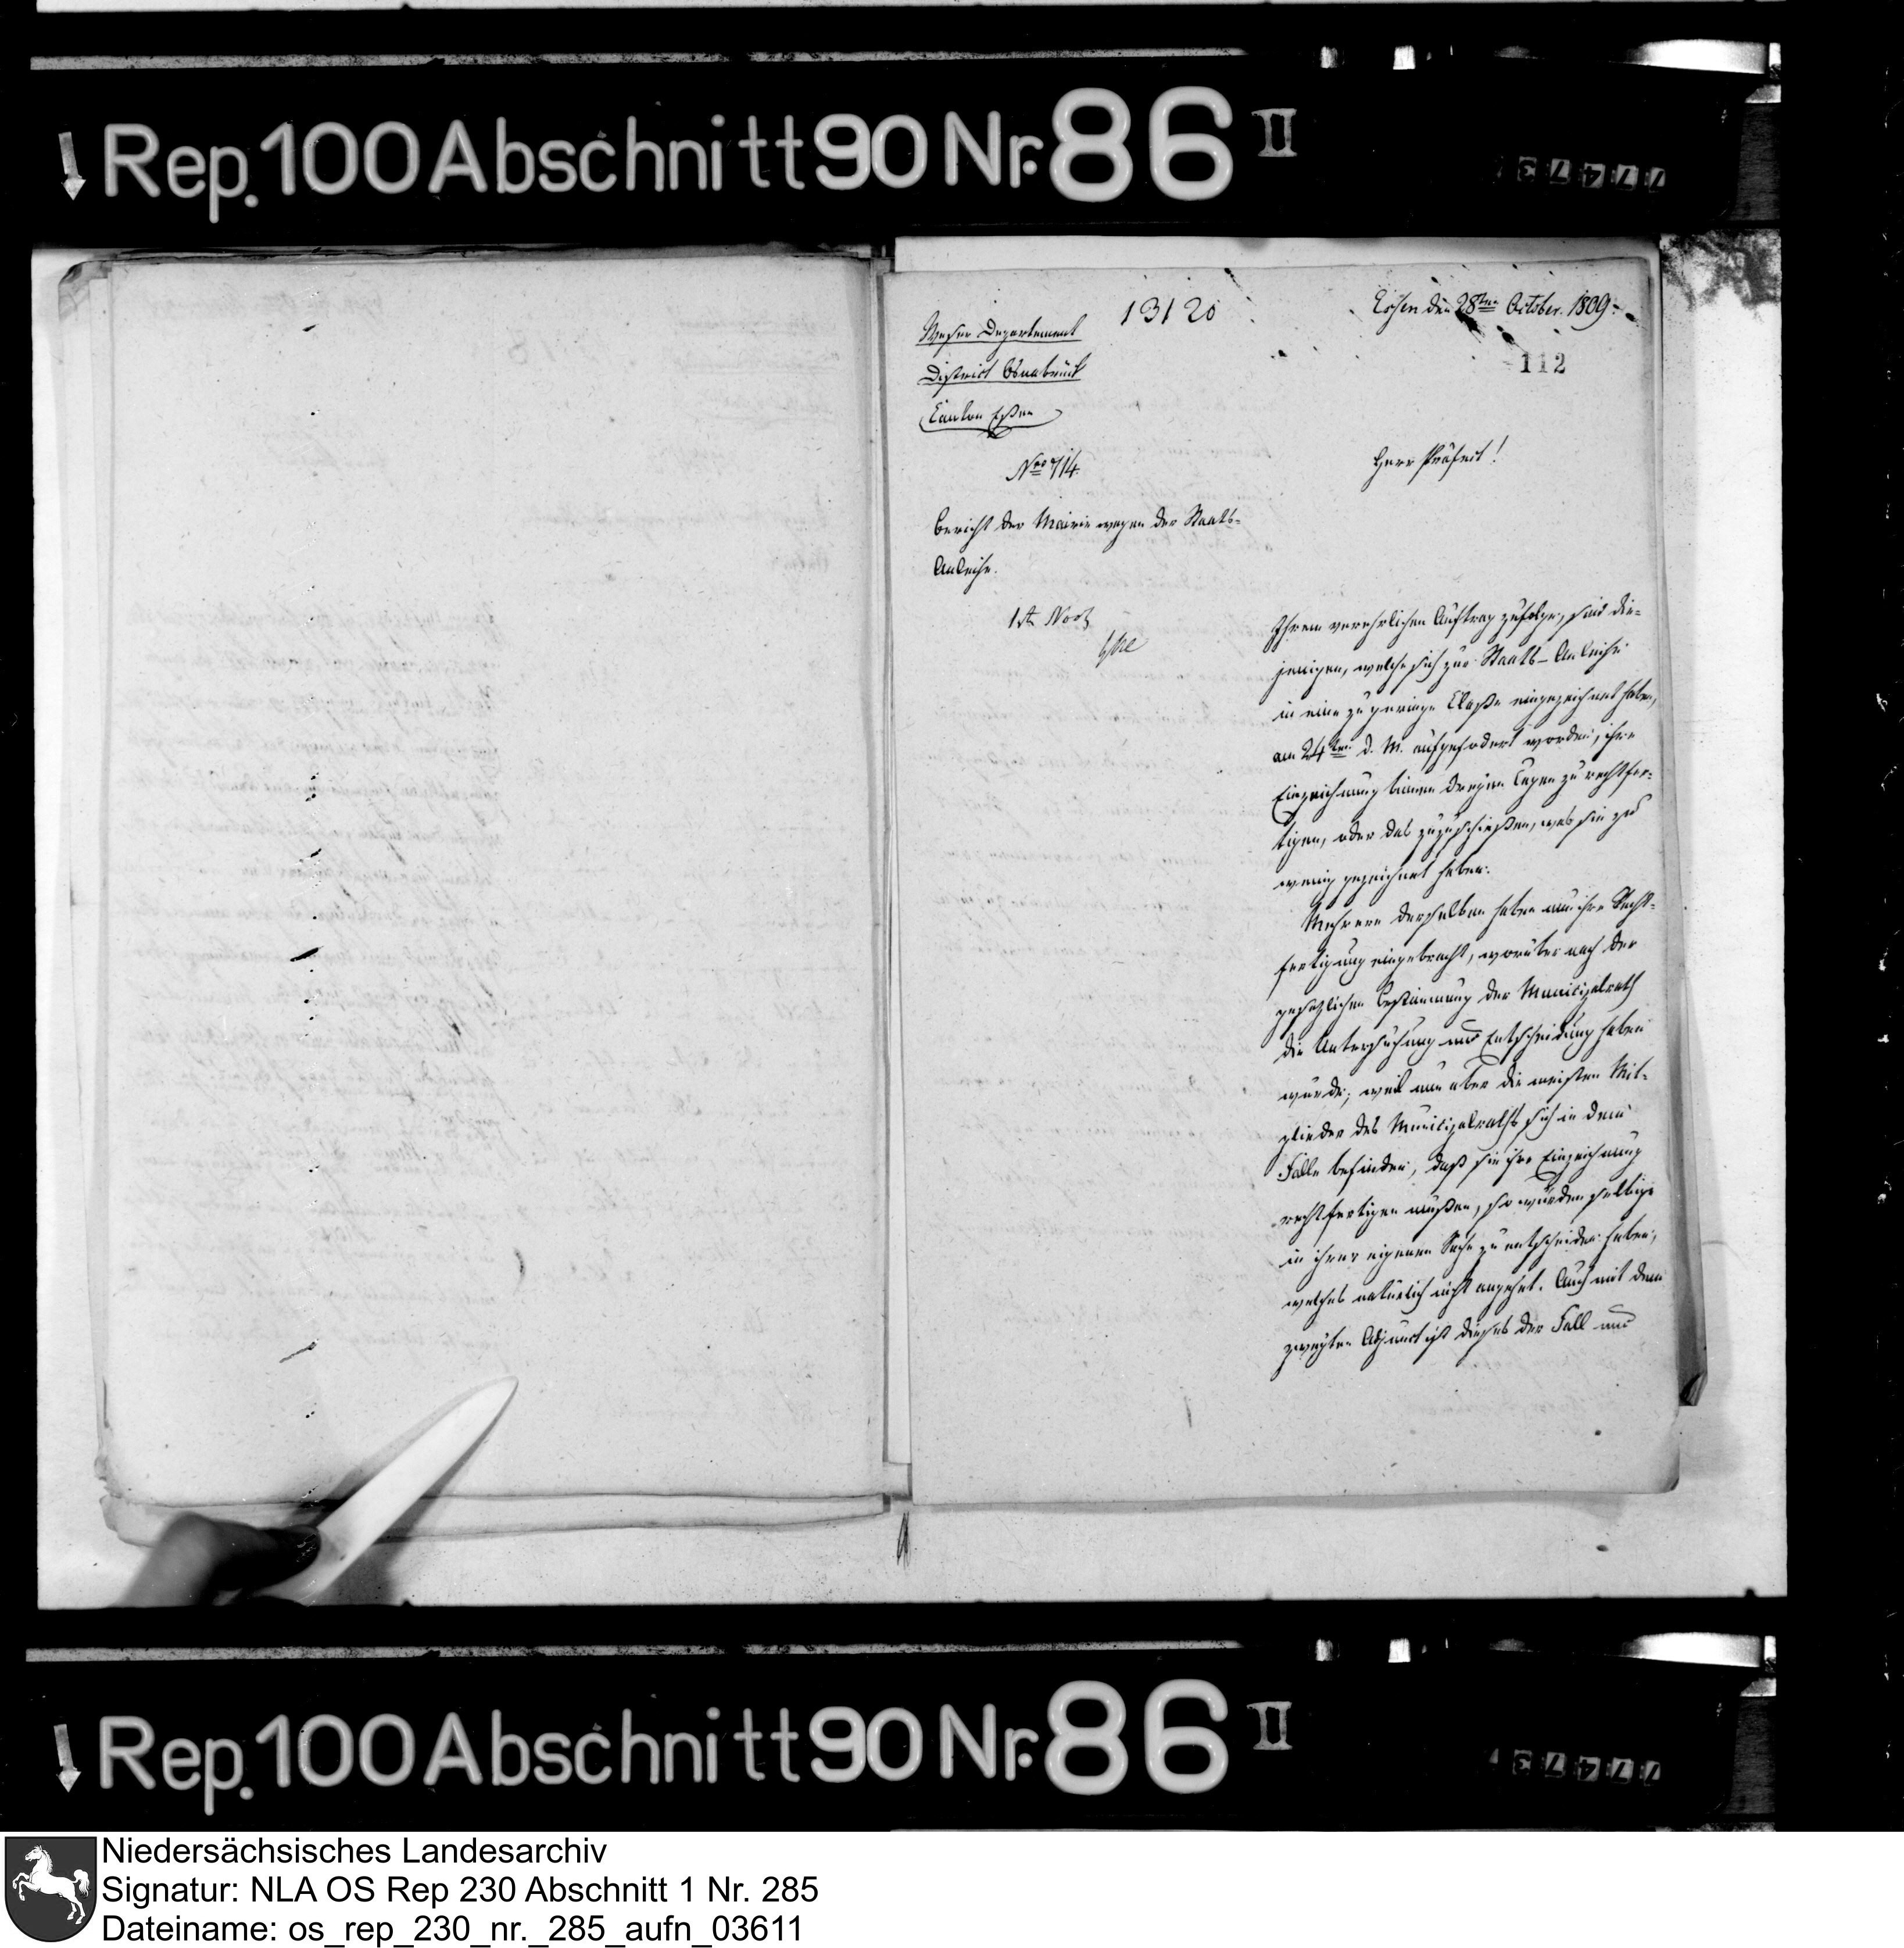 Rep. 100 Abschnitt 90 Nr. 86 II
13120
Essen den 28ten October. 1809.
Weser Departement
District Osnabrück
Canton Essen
112
Nro 714.
Herr Präfect!
Bericht der Mairie wegen der Staats-
Anleihe.
Ihrem verehrlichen Auftrag zufolge, sind die-
jenigen, welche sich zur Staats-Anleihe
in eine zu geringe Claße eingezeichnet haben,
am 24ten d. M. aufgefodert worden, ihre
Einzeichnung binnen dreyen Tagen zu rechtfer-
tigen, oder das zuzuschießen, was sie zu
wenig gezeichnet haben.
Mehrere derselben haben nun ihre Recht-
fertigung eingebracht, worüber nach der
gesezlichen Bestimmung der Municipalrath
die Untersuchung und Entscheidung haben
würde; weil nun aber die meisten Mit-
glieder des Municipalraths sich in dem
Falle befinden, daß sie ihre Einzeichnung
rechtfertigen müßen, so würden selbige
in ihrer eigenen Sache zu entscheiden haben,
welches natürlich nicht angehet. Auch mit dem
zweyten Adjunct ist dieses der Fall und
Rep. 100 Abschnitt 90 Nr. 86 II
Niedersächsisches Landesarchiv
Signatur: NLA OS Rep 230 Abschnitt 1 Nr. 285
Dateiname: os_rep_230_nr._285_aufn_03611